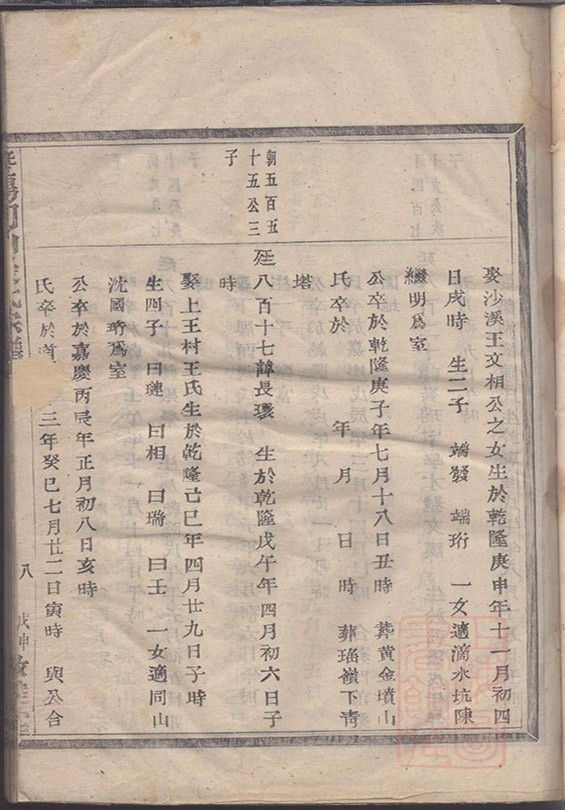 娶沙溪王文相公之女生於乾隆庚申年十一月初四
日戌時 生二子 端發 端珩 一女適滴水坑陳
繼明爲室
公卒於乾隆庚子年七月十八日丑時 葬黃金墳山
氏卒於 年 月 日 時 葬瑤嶺下靑
塔
朝五百五
十五公三
子
廷八百十七諱長瓌 生於乾隆戊午年四月初六日子
時
娶上王村王氏生於乾隆己巳年四月廿九日子時
生四子曰璉 曰相 曰瑞 曰玉 一女適同山
沈國珩爲室
公卒於嘉慶丙辰年正月初八日亥時
氏卒於道 三年癸巳七月廿二日寅時 與公合
八
戊申